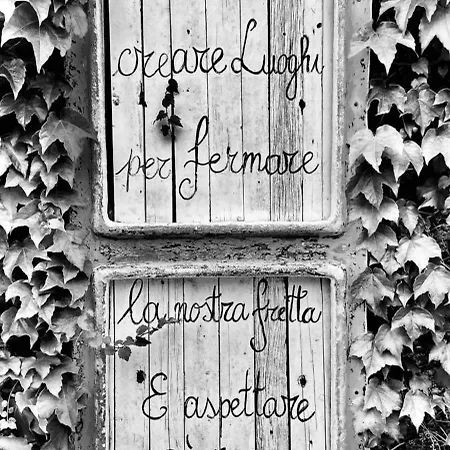 creare Luoghi
per fermare
la nostra fretta
E aspettare